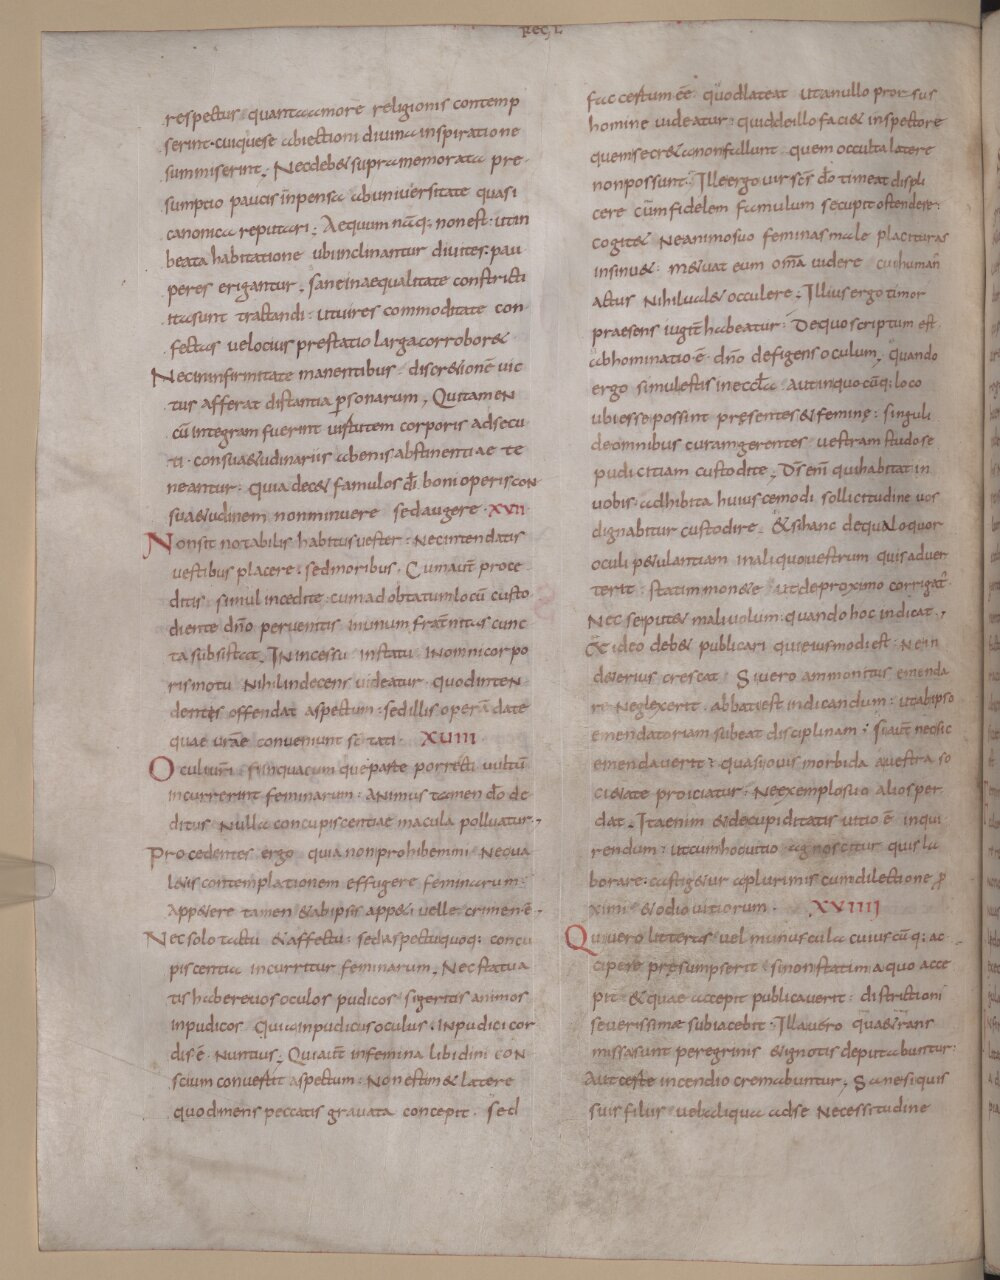 REG L
respectus quanta amore religionis contemp
serint. cuiquese abiectioni divina inspiratione
summiserint. Nec debet supra memorata pre
sumptio paucis inpensa ab universitate quasi
canonica reputari. Aequum namq; non est. ut in
beata habitatione ubi inclinantur divites. pau
peres erigantur. sane inaequalitate constricti
ita sunt tractandi. ut vires commoditate con
fectas velocius prestatio larga corroboret
Nec in infirmitate manentibus discretionē vic
tus afferat distantia psonarum, Qui tamen
cū integram fuerint virtutem corporis adsecu
ti. consuetudinariis ab enis abstinentiae te
neantur. quia decet famulos dī boni operis con
suetudinem non minuere sed augere. XVII
Non sit notabilis habitus vester. Nec intendatis
vestibus placere. sed moribus. Cum aut proce
ditis simul incedite. cum ad obtatum locū custo
diente dno perventis in unum fratnitas cunc
ta subsistat. In incessu in statu In omni corpo
ris motu Nihil indecens videatur quod inten
dentes offendat aspectum. sed illis operā date
quae urāe conveniunt scītati. XVIII
Oculi urī si in quacumque parte porrecti vultū
incurrerint feminarum. animus tamen dō de
ditus Nulla concupiscentiae macula polluatur,
Procedentes ergo quia non prohibemini Nequa
letis contemplationem effugere feminarum.
Appetere tamen et ab ipsis appeti velle crimen ē.
Nec solo tactu et affectu. sed aspectu quoq; concu
piscentia incurritur feminarum, Nec statua
tis habere vos oculos pudicos si geritis animos
inpudicos Quia inpudicus oculus. Inpudici cor
dis ē Nuntius, Qui aut in femina libidini con
scium convestit aspectum. Non estimet latere
quod mens peccatis gravata concepit. sed
fac certum eē. quod lateat ut a nullo prorsus
homine videatur. quid de illo faciet inspectore
quem secreta non fallunt quem occulta latere
non possunt. Ille ergo vir scs dō timeat displi
cere cum fidelem famulum se cupit ostendere.
cogitet Ne animo suo feminas male placituras
insinuet. metuat eum omā videre cui human
actus Nihil valet occulere, Illius ergo timor
praesens iugit habeatur. De quo scriptum est
abhominatio ē dno defigens oculum, quando
ergo simul estis in eccła aut in quocūq; loco
ubi esse possint presentes et feminę. singuli
de omnibus curam gerentes vestram studose
pudicitiam custodite. Ds enī qui habitat in
vobis. adhibita huiuscemodi sollicitudine vos
dignabitur custodire. Et si hanc de qua loquor
oculi petulantiam in aliquo vestrum quis adver
terit. statim monete ut de proximo corrigat
Nec se putet malivolum. quando hoc indicat,
Et ideo debet publicari qui eiusmodi est Nein
deterius crescat Si vero ammonitus emenda
re Neglexerit. abbati est indicandum. ut ab ipso
emendatoriam subeat disciplinam. si aut nec sic
emendaverit. quasi ovis morbida a vestra so
cietate proiciatur. Ne exemplo suo alios per
dat. Ita enim et de cupiditatis vitio ē inqui
rendum. ut cum hoc vitio agnoscitur quis la
borare. castigetur a plurimis cum dilectione p
ximi et odio vitiorum. XVIIII
Qui vero litteras vel munuscula cuiuscūq; ac
cipere presumpserit si non statim a quo acce
pit et quae accepit publicaverit. districtioni
severissimae subiacebit. Illa vero quae trans
missa sunt peregrinis et ignotis deputabuntur.
Aut certe incendio cremabuntur, Sane si quis
suis filiis vel aliqua ad se Necessitudine